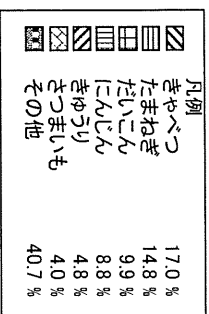 凡例
きゃべつ 17.0 %
たまねぎ 14.8 %
だいこん 9.9 %
にんじん 8.8 %
きゅうり 4.8 %
さつまいも 4.0 %
その他 40.7 %